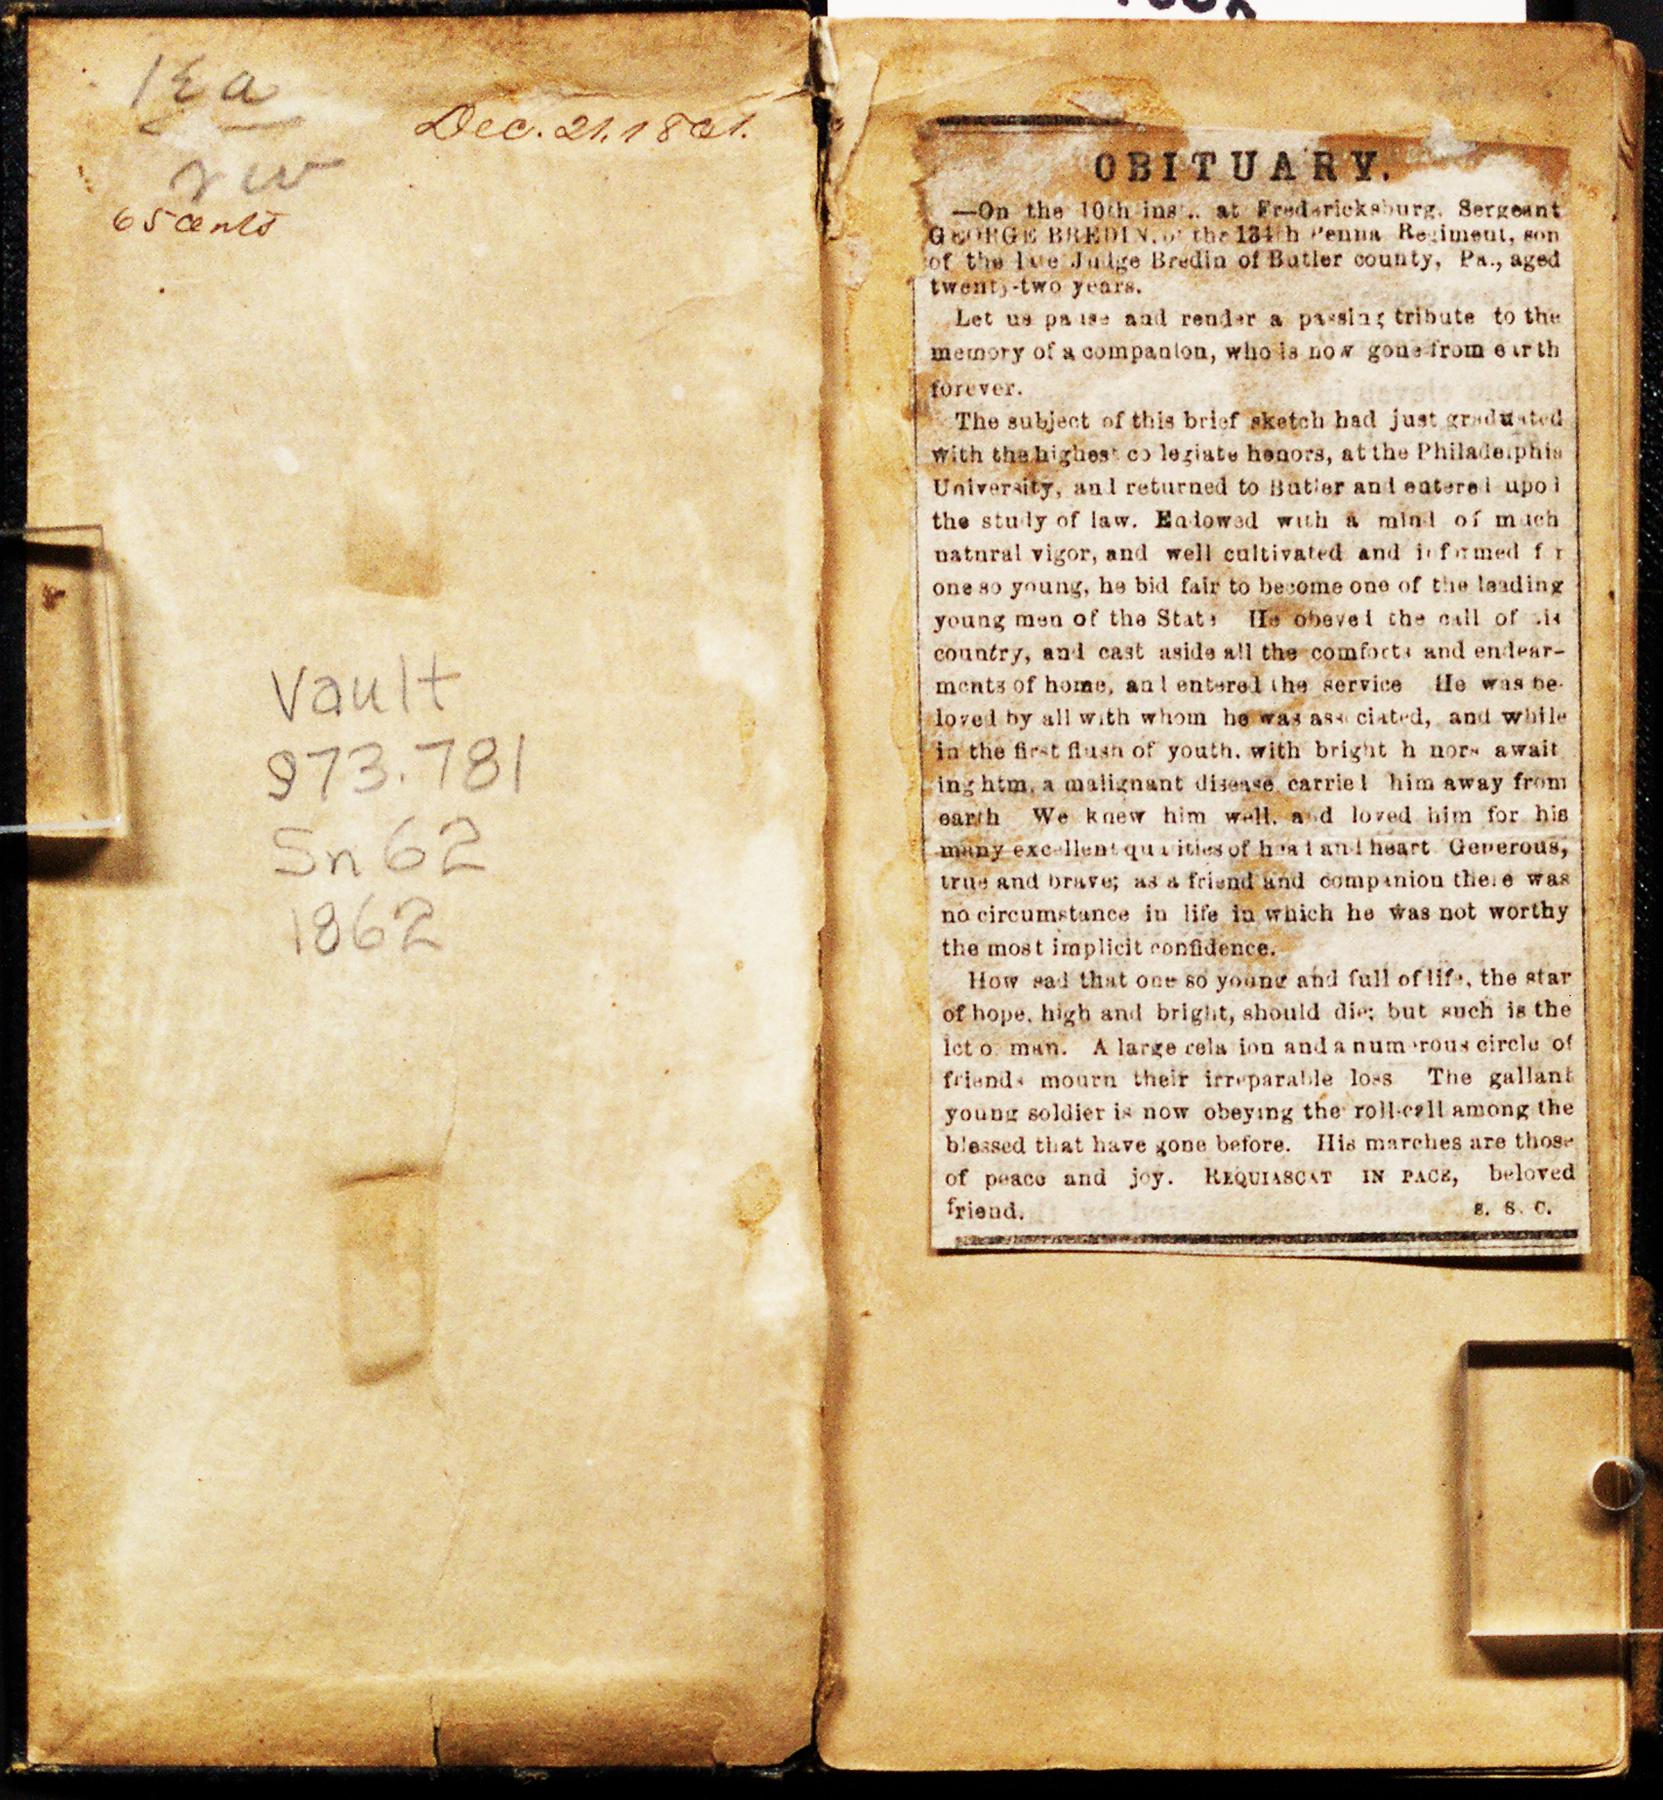 Dec. 21. 1861.
65 cents
Vault
973.781
Sn62
1862
OBITUARY.
—On the 10th inst., at Fredericksburg, Sergeant
GEORGE BREDIN, of the 134th Penna Regiment, son
of the late Judge Bredin of Butler county, Pa., aged
twenty-two years.
Let us pause and render a passing tribute to the
memory of a companion, who is now gone from earth
forever.
The subject of this brief sketch had just graduated
with the highest collegiate honors, at the Philadelphia
University, and returned to Butler and entered upon
the study of law. Endowed with a mind of much
natural vigor, and well cultivated and informed for
one so young, he bid fair to become one of the leading
young men of the State He obeyed the call of his
country, and cast aside all the comforts and endear-
ments of home, and entered the service He was be-
loved by all with whom he was associated, and while
in the first flush of youth, with bright honors await
ing him, a malignant disease carried him away from
earth We knew him well, and loved him for his
many excellent qualities of head and heart Generous,
true and brave; as a friend and companion there was
no circumstance in life in which he was not worthy
the most implicit confidence.
How sad that one so young and full of life, the star
of hope, high and bright, should die; but such is the
lot of man. A large relation and a numerous circle of
friends mourn their irreparable loss The gallant
young soldier is now obeying the roll-call among the
blessed that have gone before. His marches are those
of peace and joy. REQUIASCAT IN PACE, beloved
friend. S. S. C.